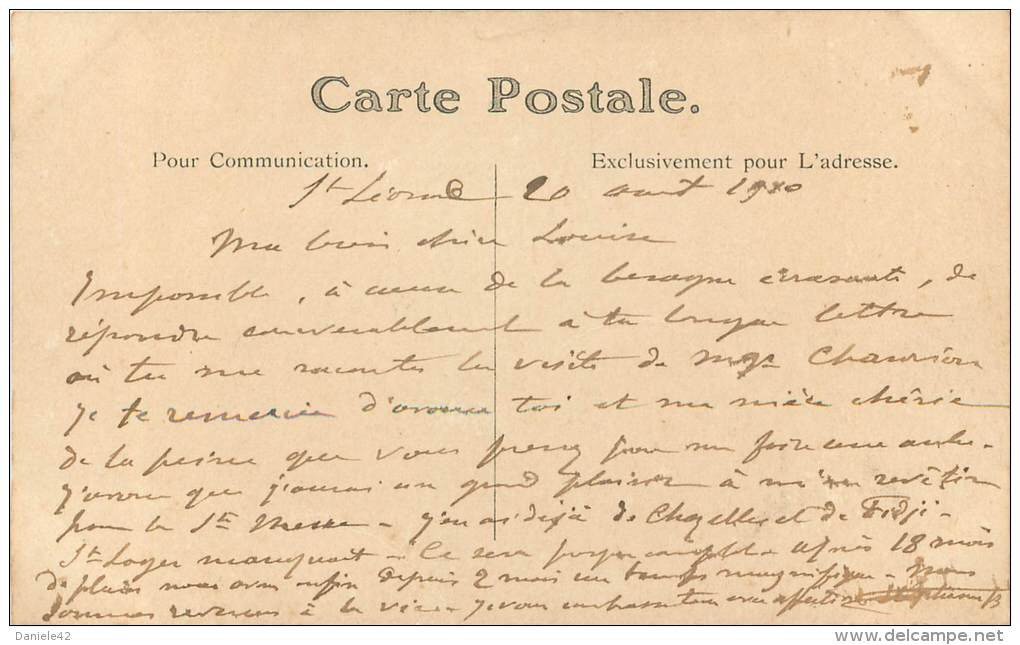 Carte Postale.
Pour Communication.
Exclusivement pour L'adresse.
20 aout 1910
Ma bien chère Louise
Impossible, à cause de la besogne écrasante, de
répondre convenablement à ta longue lettre
où tu me racontes la visite de Mgr
je te remercie d'avance toi et ma nièce chérie
de la peine que vous prenez pour me faire une aube.
J'avoue que j'aurai un grand plaisir à m'en revêtir
pour la Ste Messe - j'en ai déjà de Chazelles et de Fidji -
St Loger manquait - Ce sera presque complet - après 18 mois
de pluies nous avons enfin depuis 2 mois un temps magnifique - Nous
sommes revenus à la vie - Je vous embrasse
Daniele42
www.delcampe.net